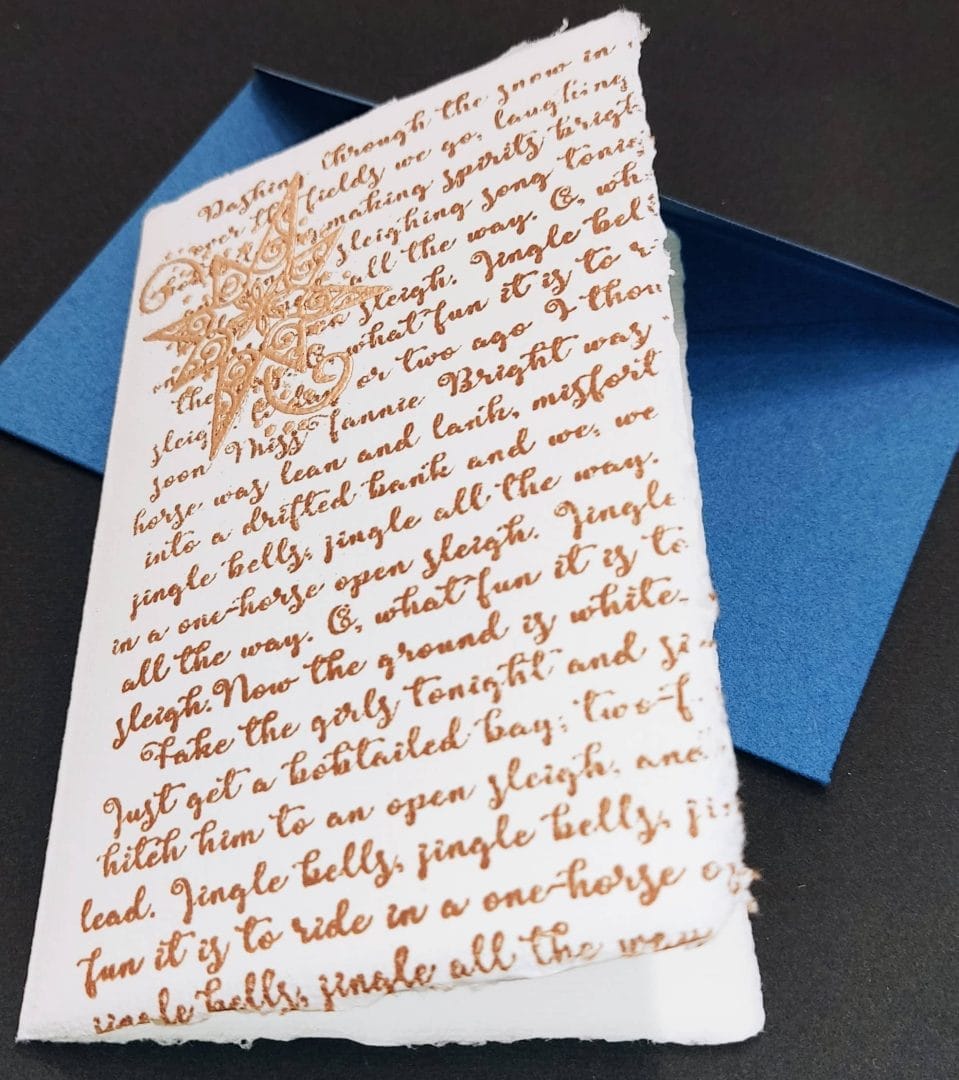 Dashing through the snow in
over the fields we go, laughing
making spirits bright
sleighing song
all the way. O, wh
sleigh. Jingle bel
what fun it is to
the or two ago I thou
sleig
soon Miss Fannie Bright way
horse way lean and lank, misfort
into a drifted bank and we, we
jingle bells, jingle all the way.
in a one-horse open sleigh. Jingle
all the way. O, what fun it is to
sleigh. Now the ground is white
Take the girls tonight and si
Just get a bobtailed bay; two-f
hitch him to an open sleigh, and
lead. Jingle bells, jingle bells, ji
fun it is to ride in a one-horse o
jingle bells, jingle all the way